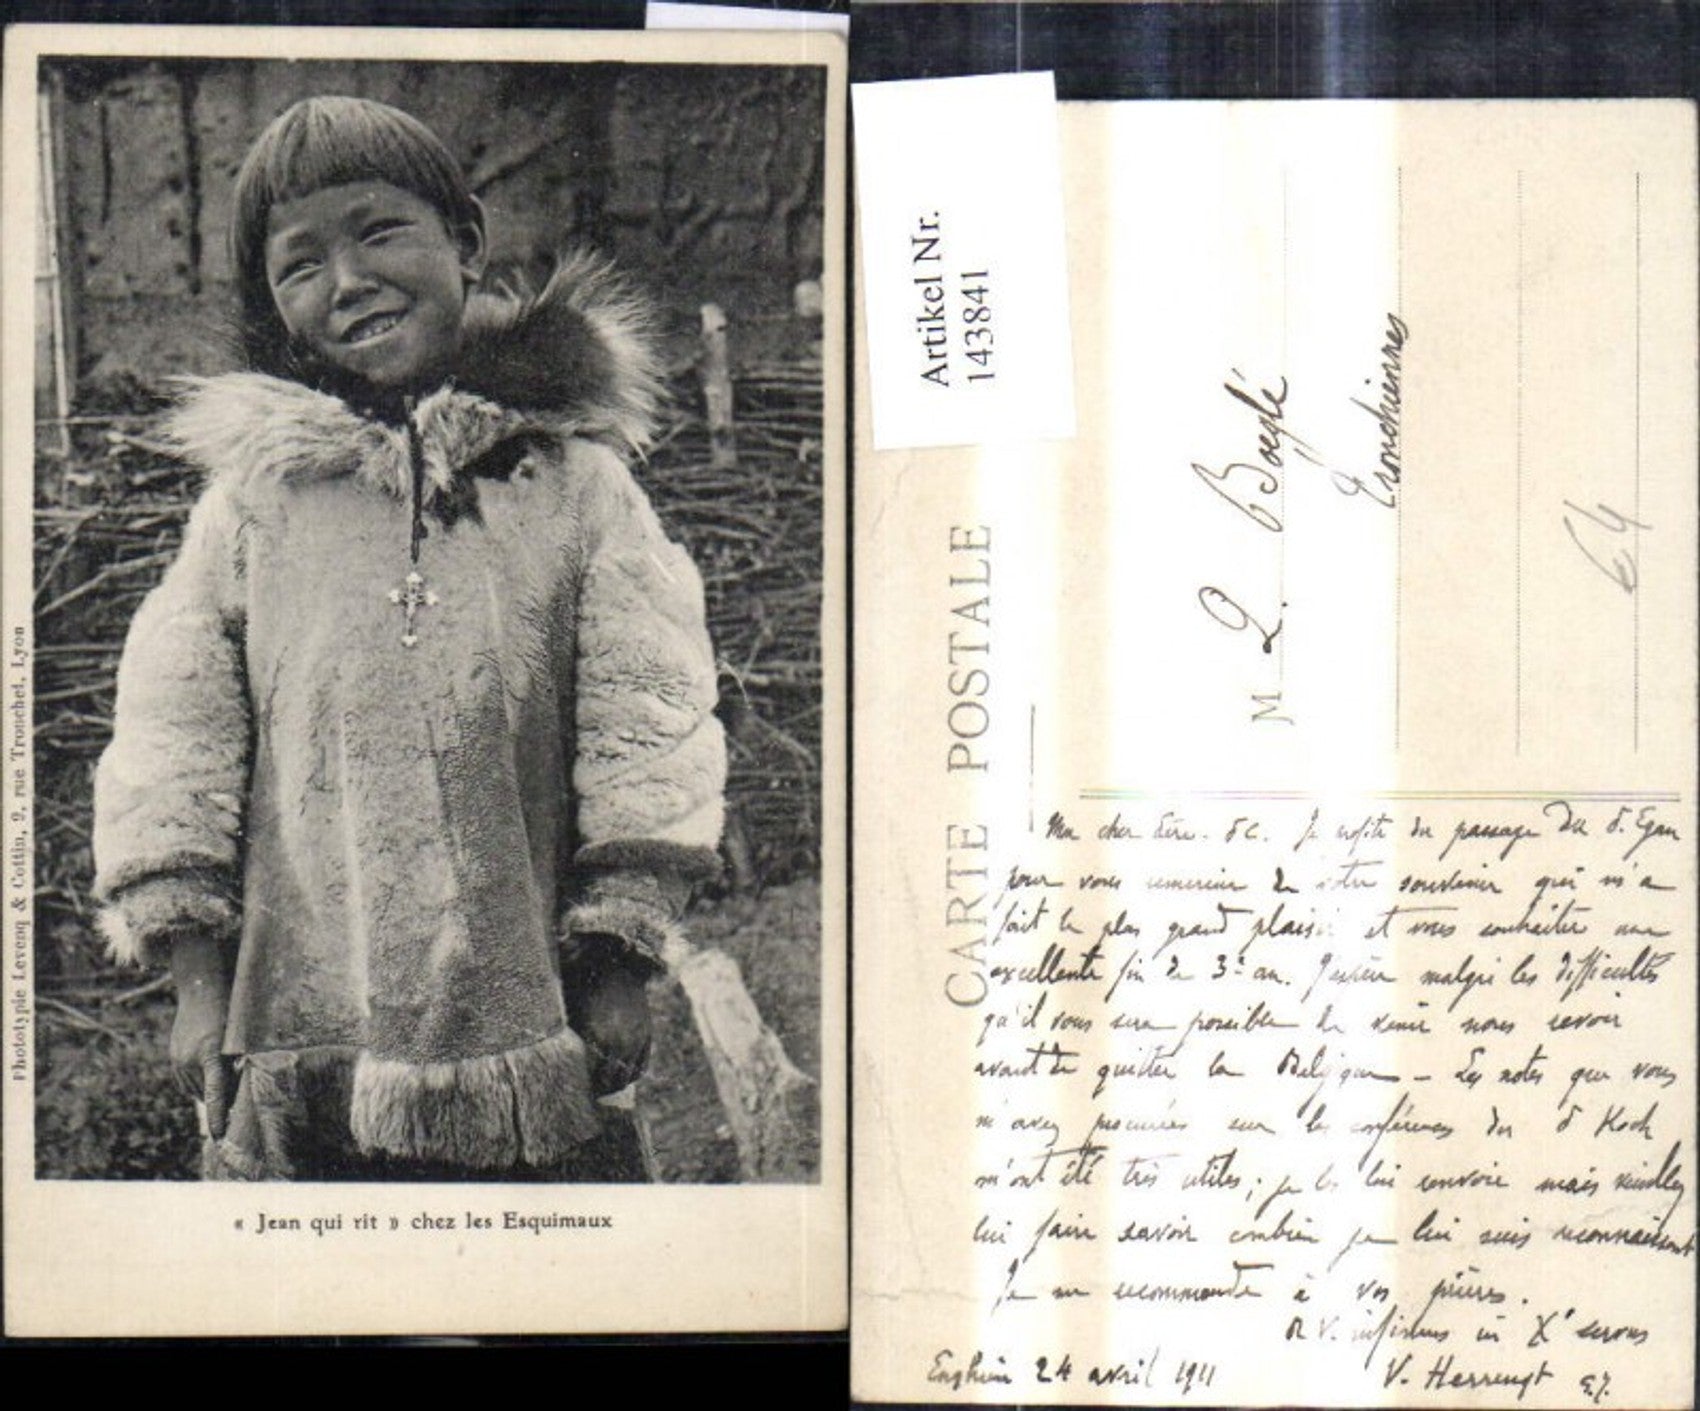 Phototypie Levenq & Cottin, 2, rue Tronchet, Lyon
« Jean qui rit » chez les Esquimaux
Artikel Nr.
143841
CARTE POSTALE
M
64
Mon cher du passage du P. Egan
pour vous remercier de votre souvenir qui m'a
fait le plus grand plaisir et vous souhaiter une
excellente fin de 3e an. J'espère malgré les difficultés
qu'il vous sera possible de venir nous revoir
avant de quitter la Belgique – Les notes que vous
m'avez procurées sur les conférences du P Koch
m'ont été très utiles; je les lui renvoie mais veuillez
lui faire savoir combien je lui suis reconnaissant
Je me recommande à vos prières.
R V. infimus in X° servus
Enghien 24 avril 1911
V.